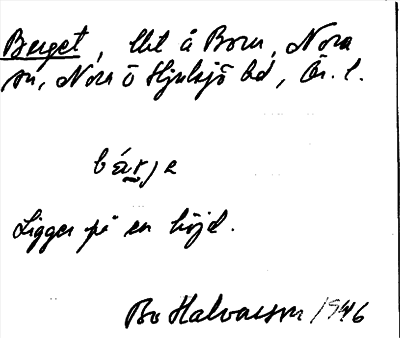 Berget, lht å Born, Nora
sn, Nora o Hjulsjö bd, Ör. l.
bä́rje
Ligger på en höjd.
Bo Halvarson 1946